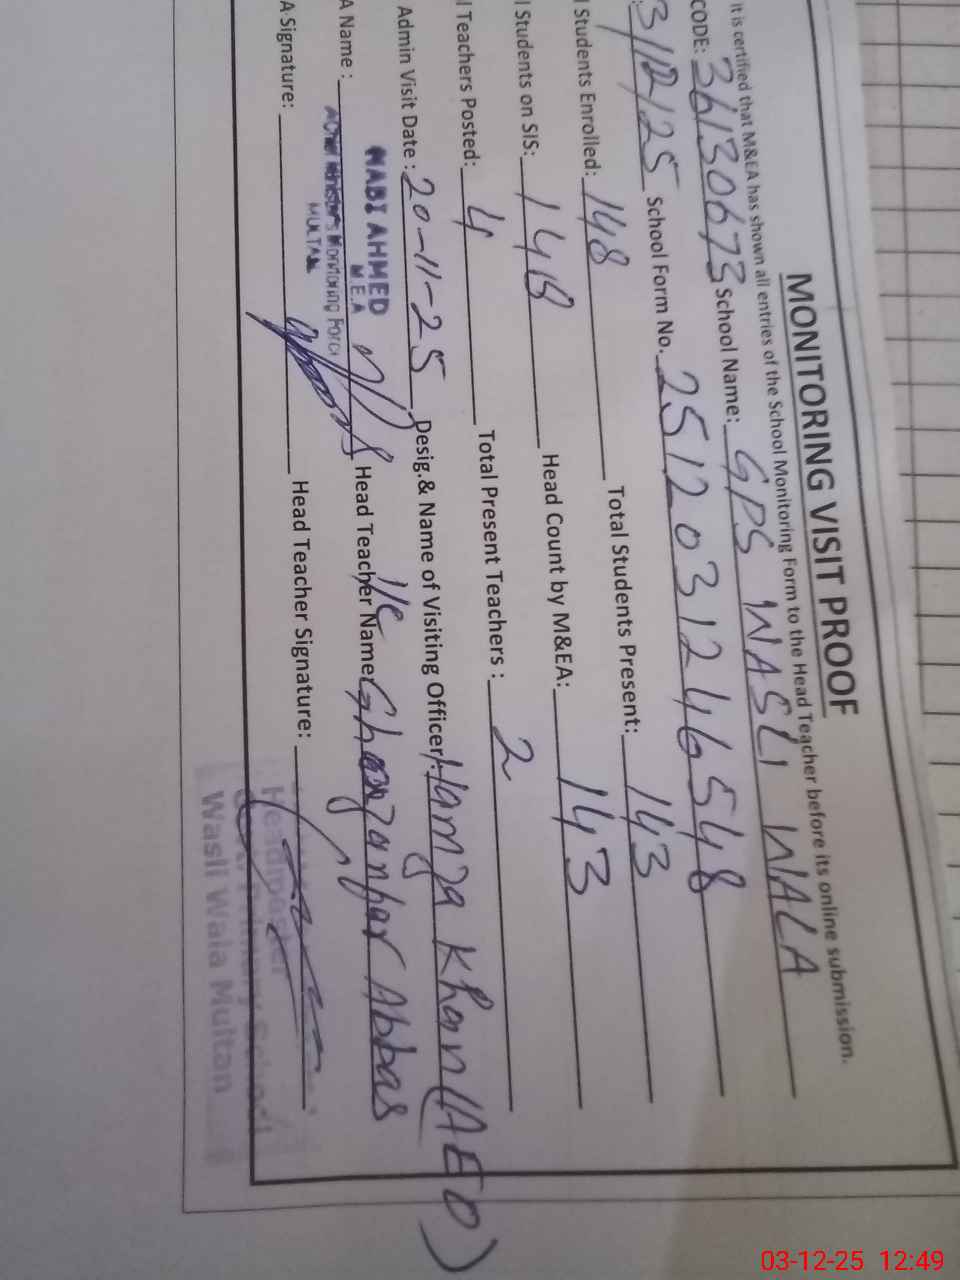 MONITORING VISIT PROOF
It is certified that M&EA has shown all entries of the School Monitoring Form to the Head Teacher before its online submission.
CODE: 36130673 School Name: GPS WASLI WALA
3/12/25 School Form No. 2512031246548
l Students Enrolled: 148 Total Students Present: 143
l Students on SIS: 148 Head Count by M&EA: 143
l Teachers Posted: 4 Total Present Teachers : 2
Admin Visit Date : 20-11-25 Desig.& Name of Visiting Officer: Hamza Khan (AEO)
A Name : NABI AHMED Head Teacher Name I/C Ghazanfar Abbas
M.E.A
Chief Minister's Monitoring Force
MULTAN
A Signature: Head Teacher Signature:
Headmaster
Govt. Primary School
Wasli Wala Multan
03-12-25 12:49